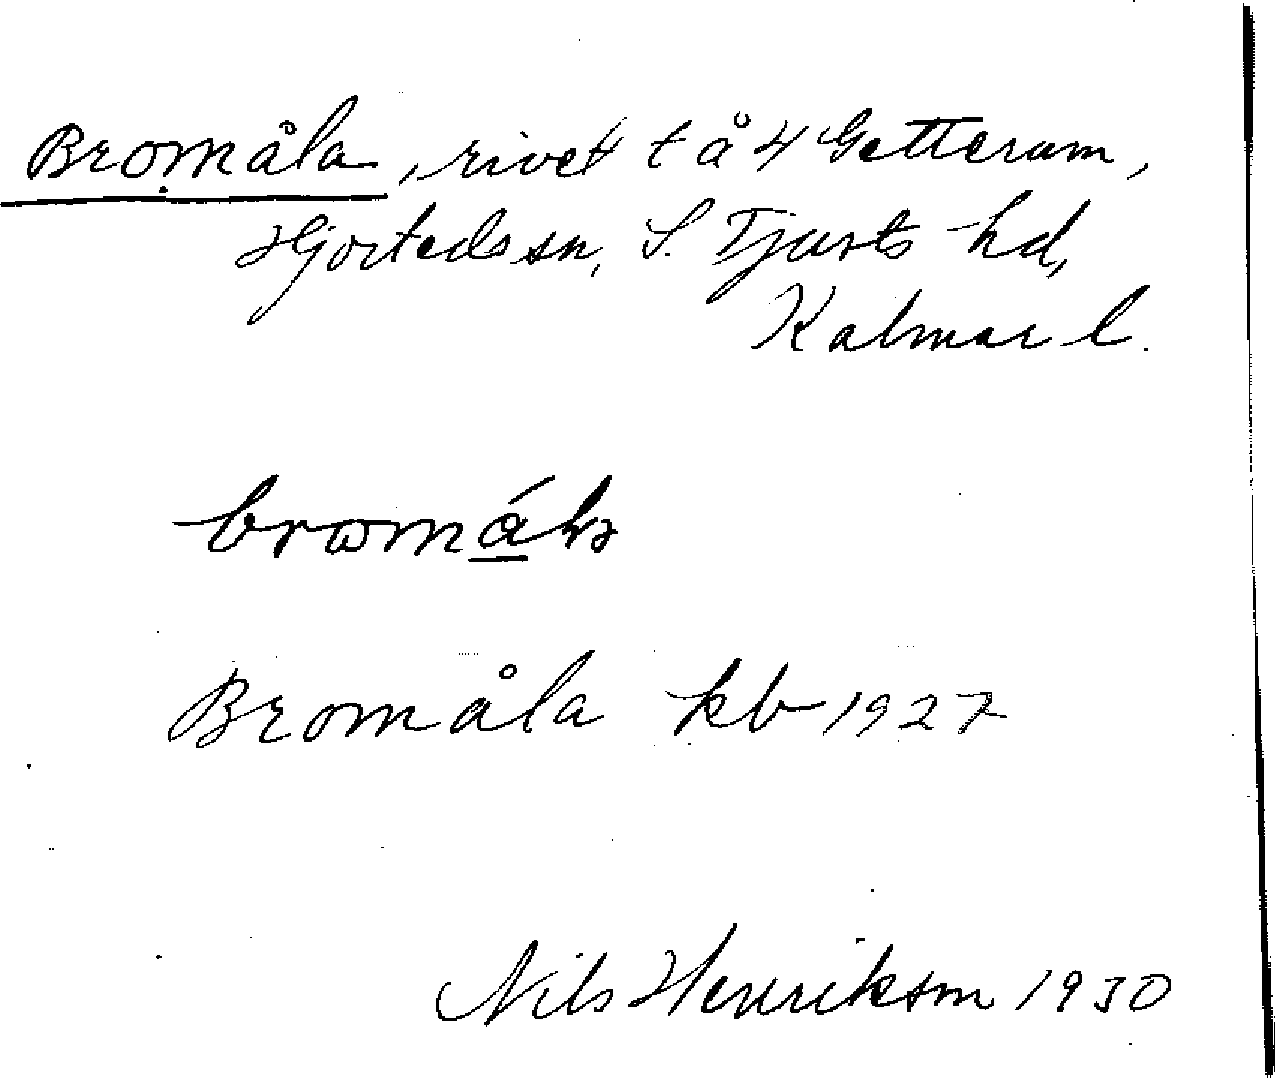 Bromåla, rivet t å 4 Getterum,
Hjorteds sn, S. Tjusts hd,
Kalmar l.
Bromåla kb 1927
Nils Henrikson 1930